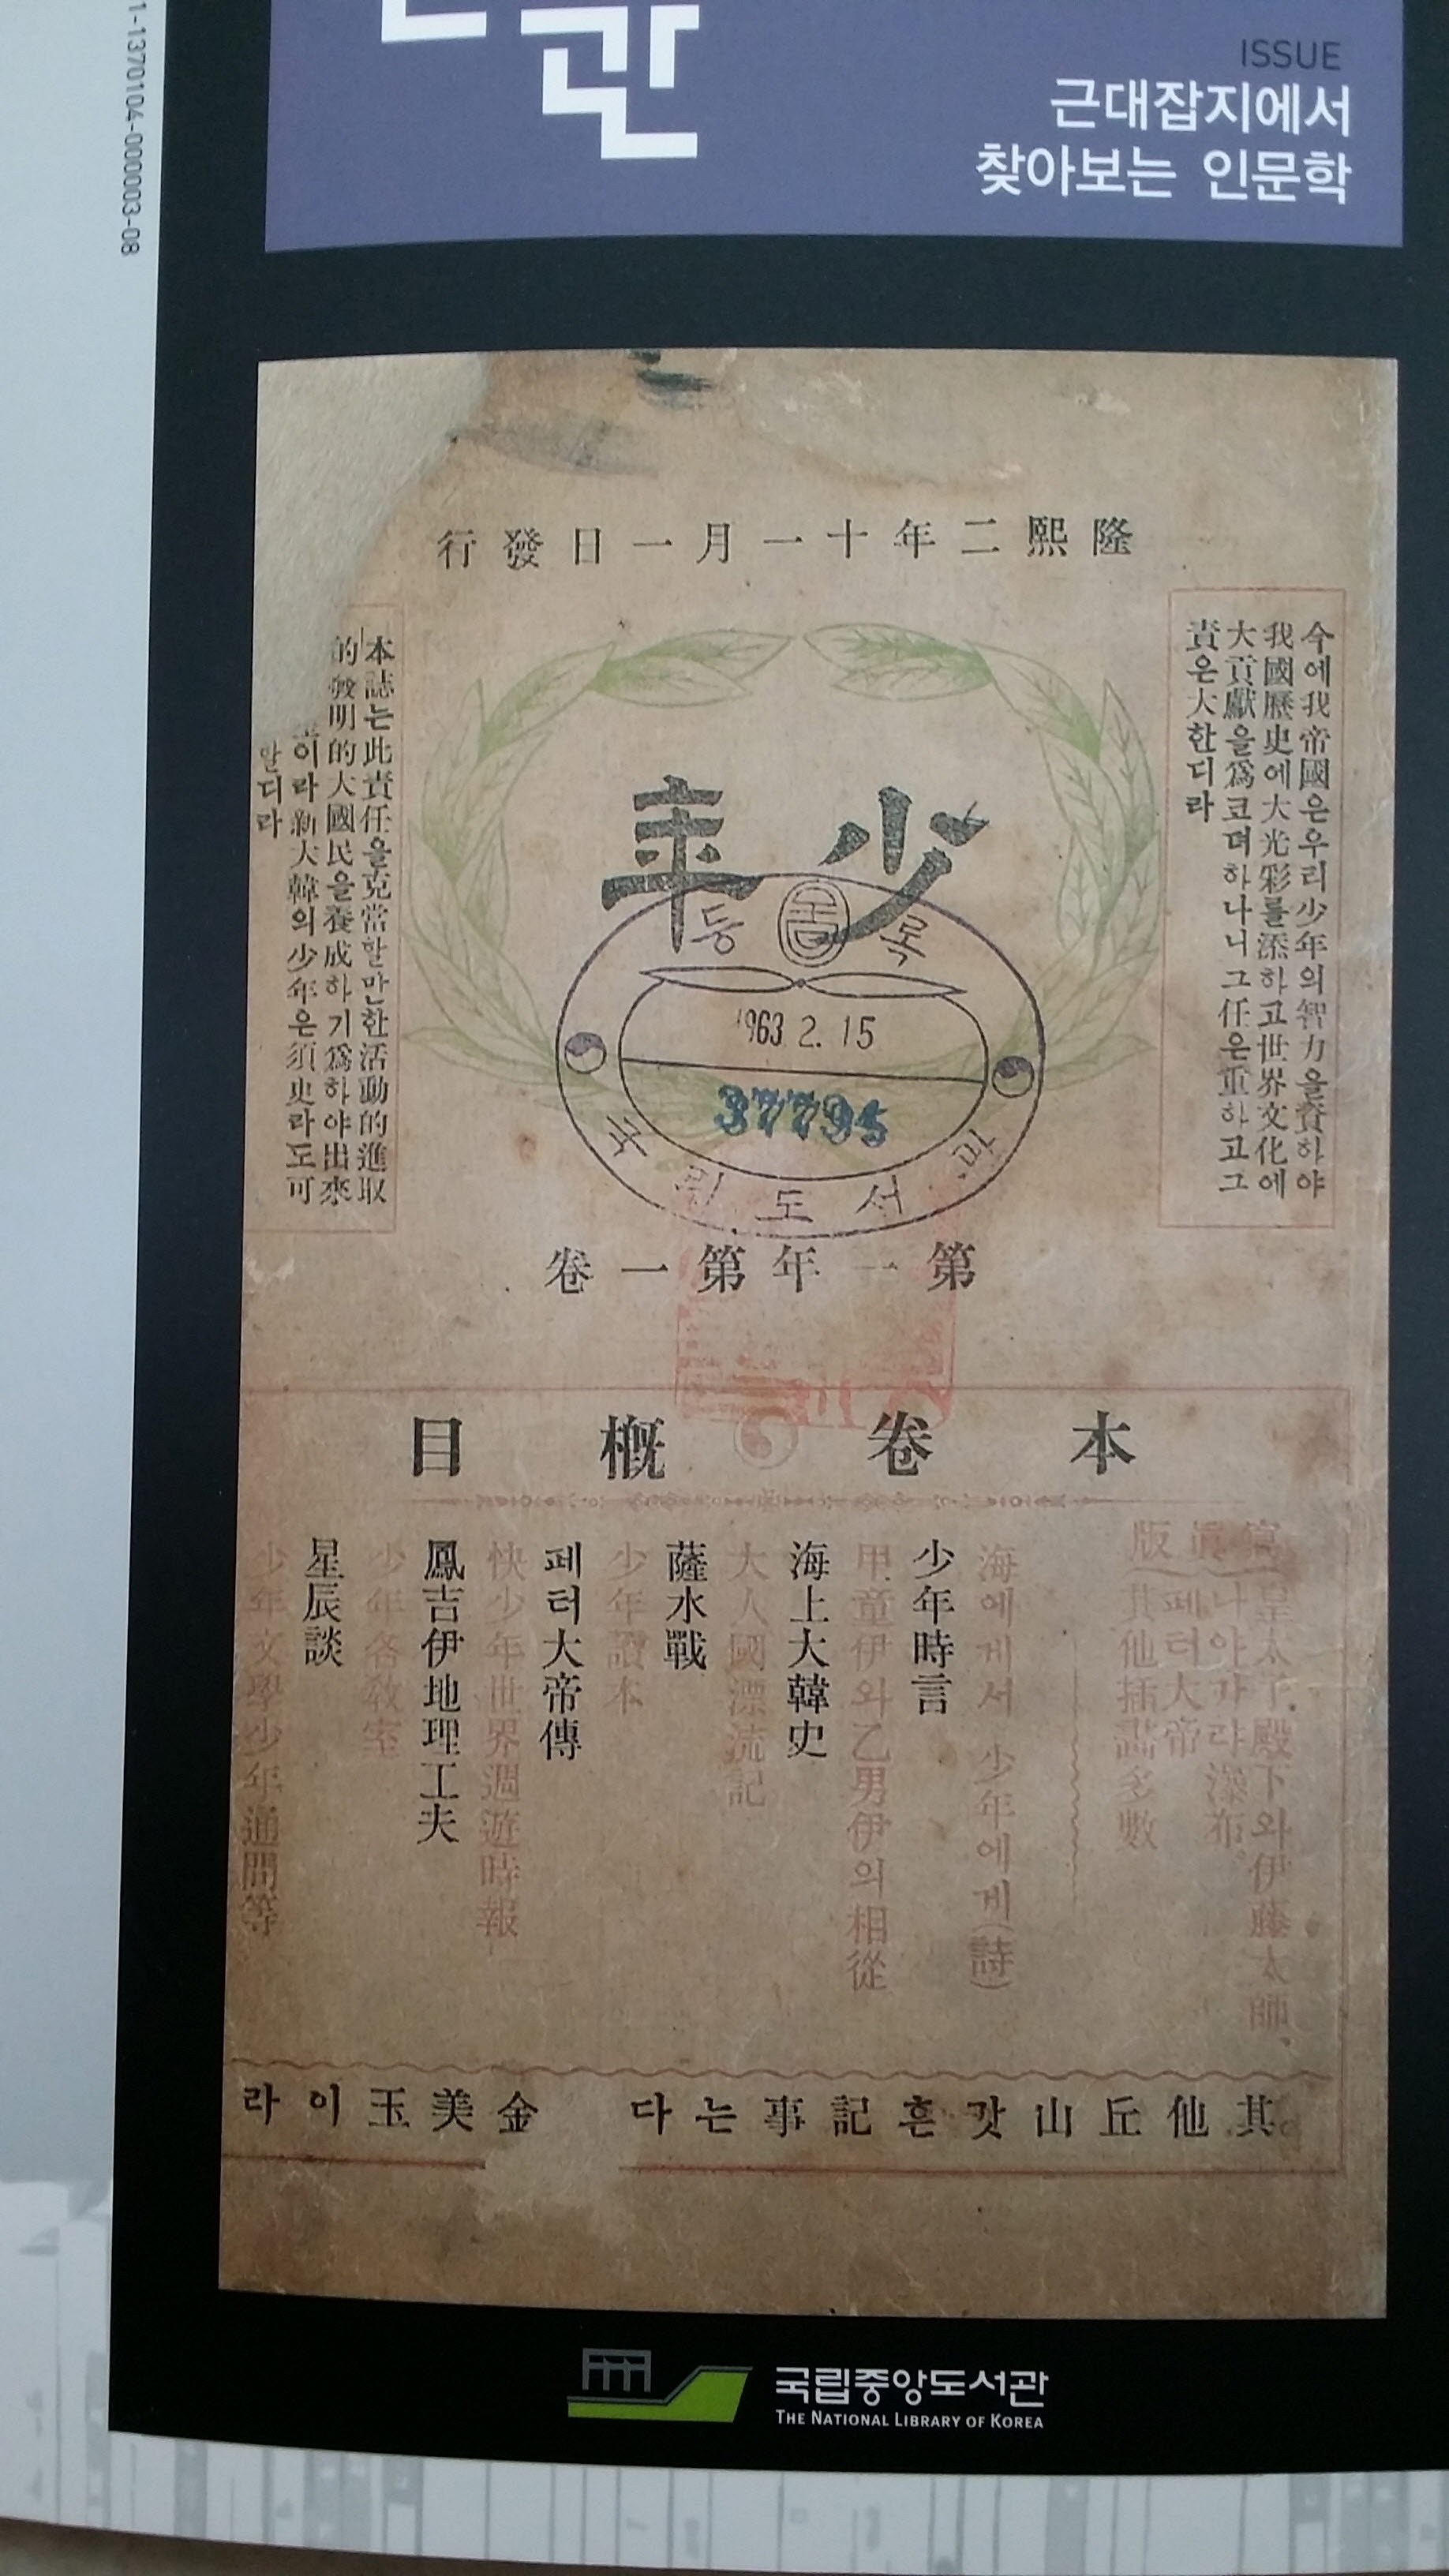 1-1370104-000003-08
관
ISSUE
근대잡지에서
찾아보는 인문학
隆熙二年十一月一日發行
今에我帝國은우리少年의智力을資하야
我國歷史에大光彩를添하고世界文化에
大貢獻을爲코뎌하나니그任은重하고그
責은大한디라
少年
本誌는此責任을克當할만한活動的進取
的發明的大國民을養成하기爲하야出來
이라新大韓의少年은須臾라도可
말디라
등록
1963.2.15
37795
국립도서관
第一年第一卷
本卷概目
寫眞版
皇太子殿下와伊藤太師.
나야가라瀑布.
페터大帝
其他揷畵多數
海에게서 少年에게(詩)
少年時言
甲童伊와乙男伊의相從
海上大韓史
大人國漂流記
薩水戰
少年讀本
페터大帝傳
快少年世界週遊時報
鳳吉伊地理工夫
少年各敎室
星辰談
少年文學少年通問等
其他丘山갓흔記事는다 金美玉이라
국립중앙도서관
THE NATIONAL LIBRARY OF KOREA